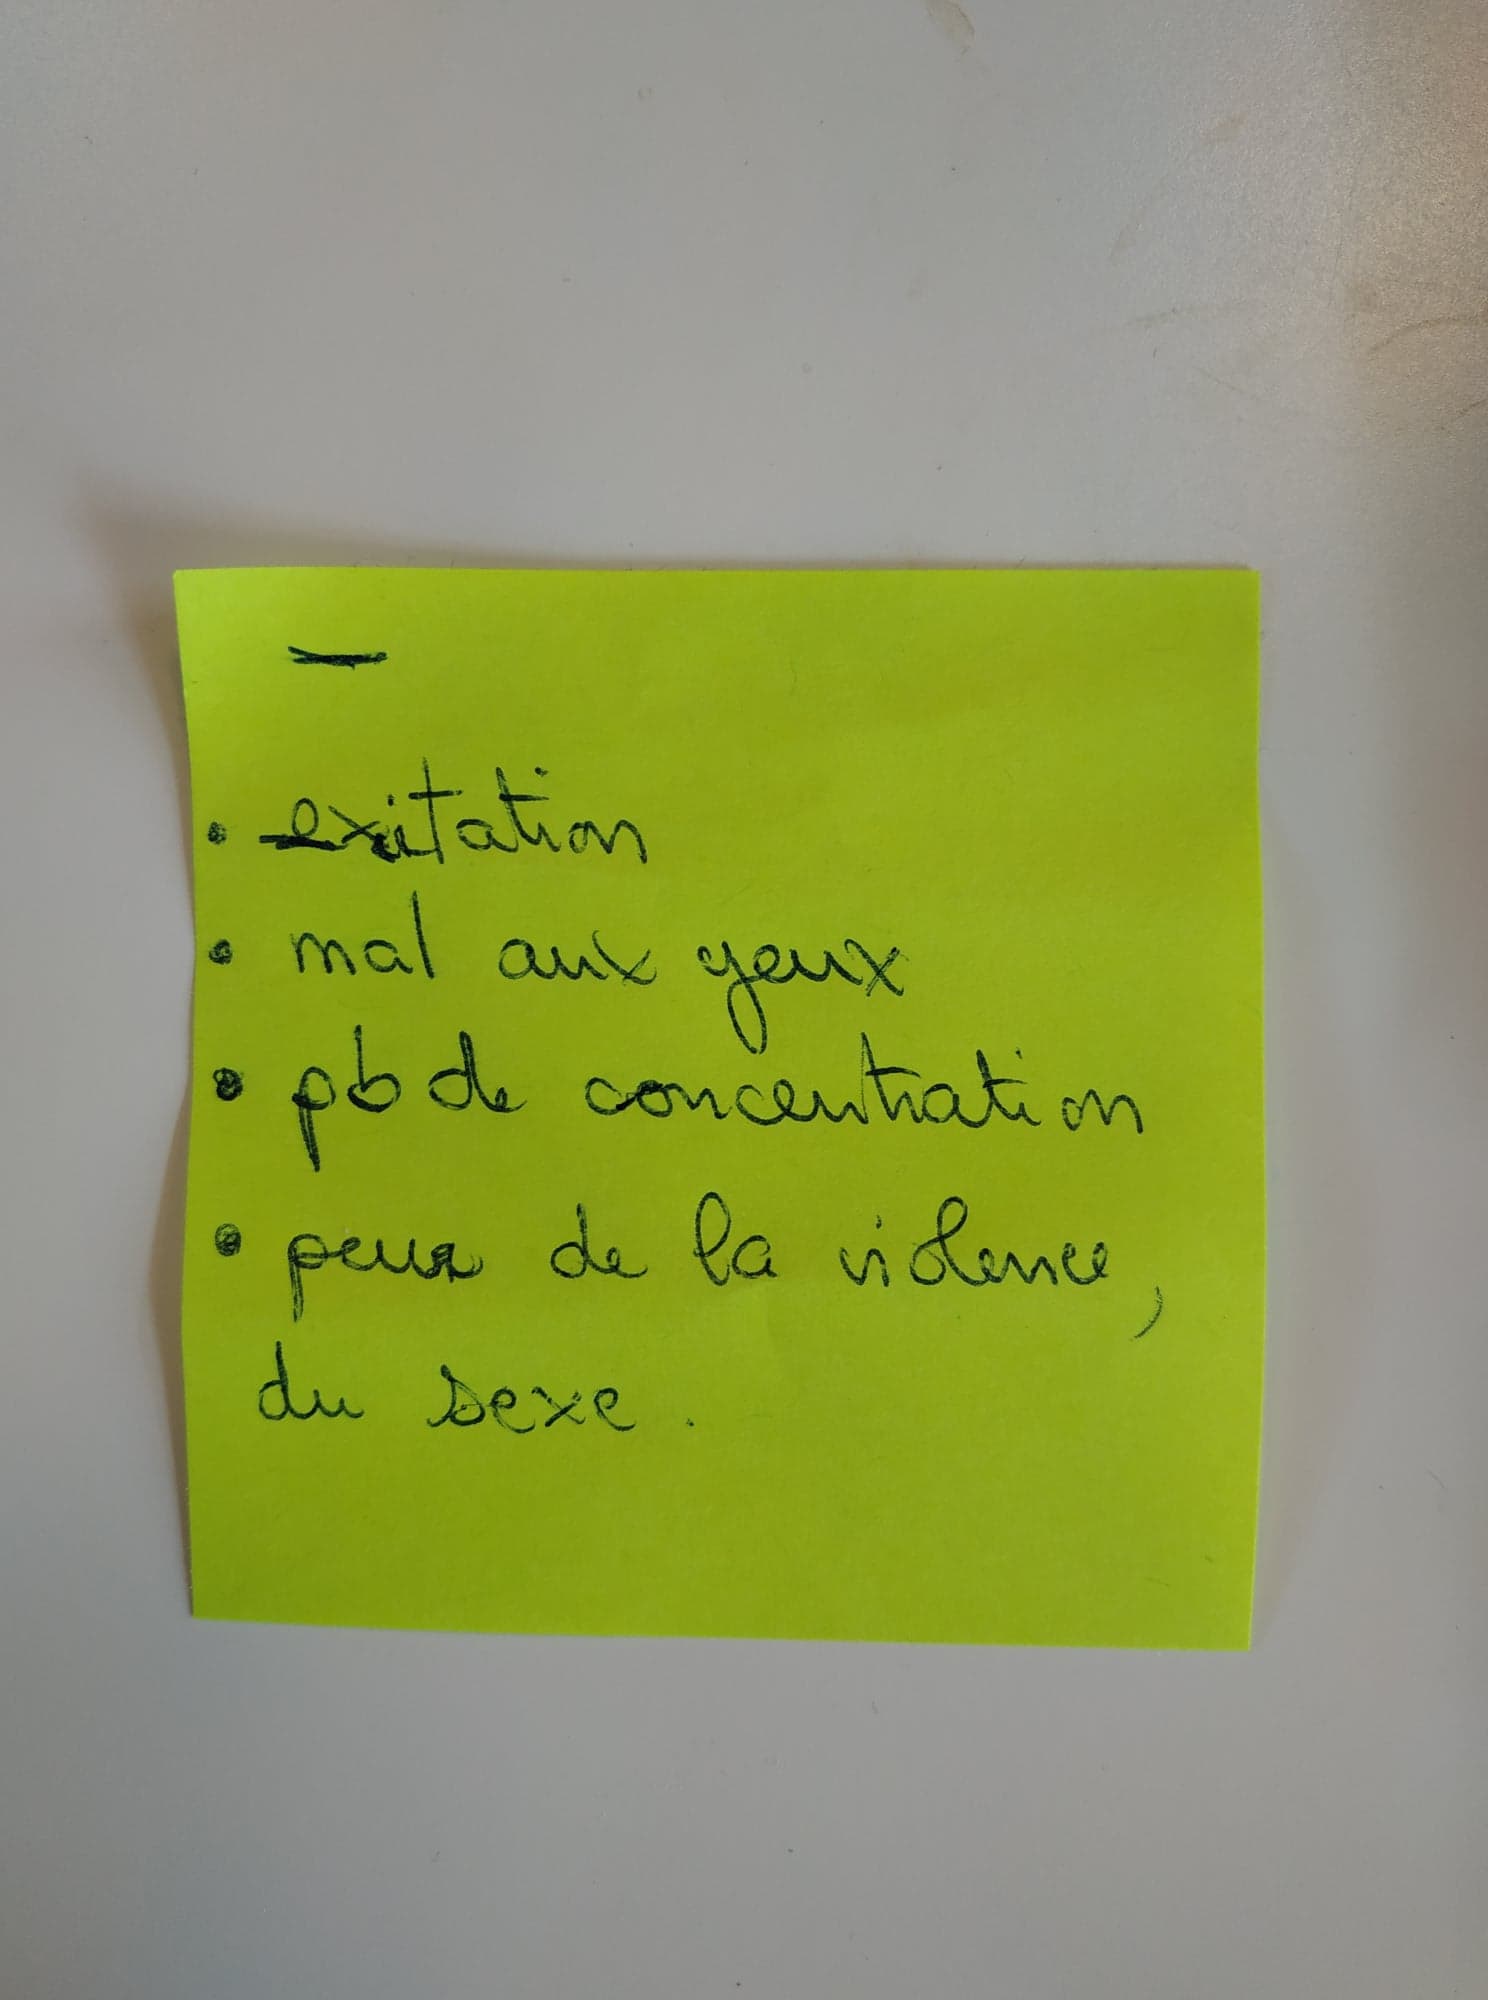 –
• exitation
• mal aux yeux
• pb de concentration
• peur de la violence,
du sexe.